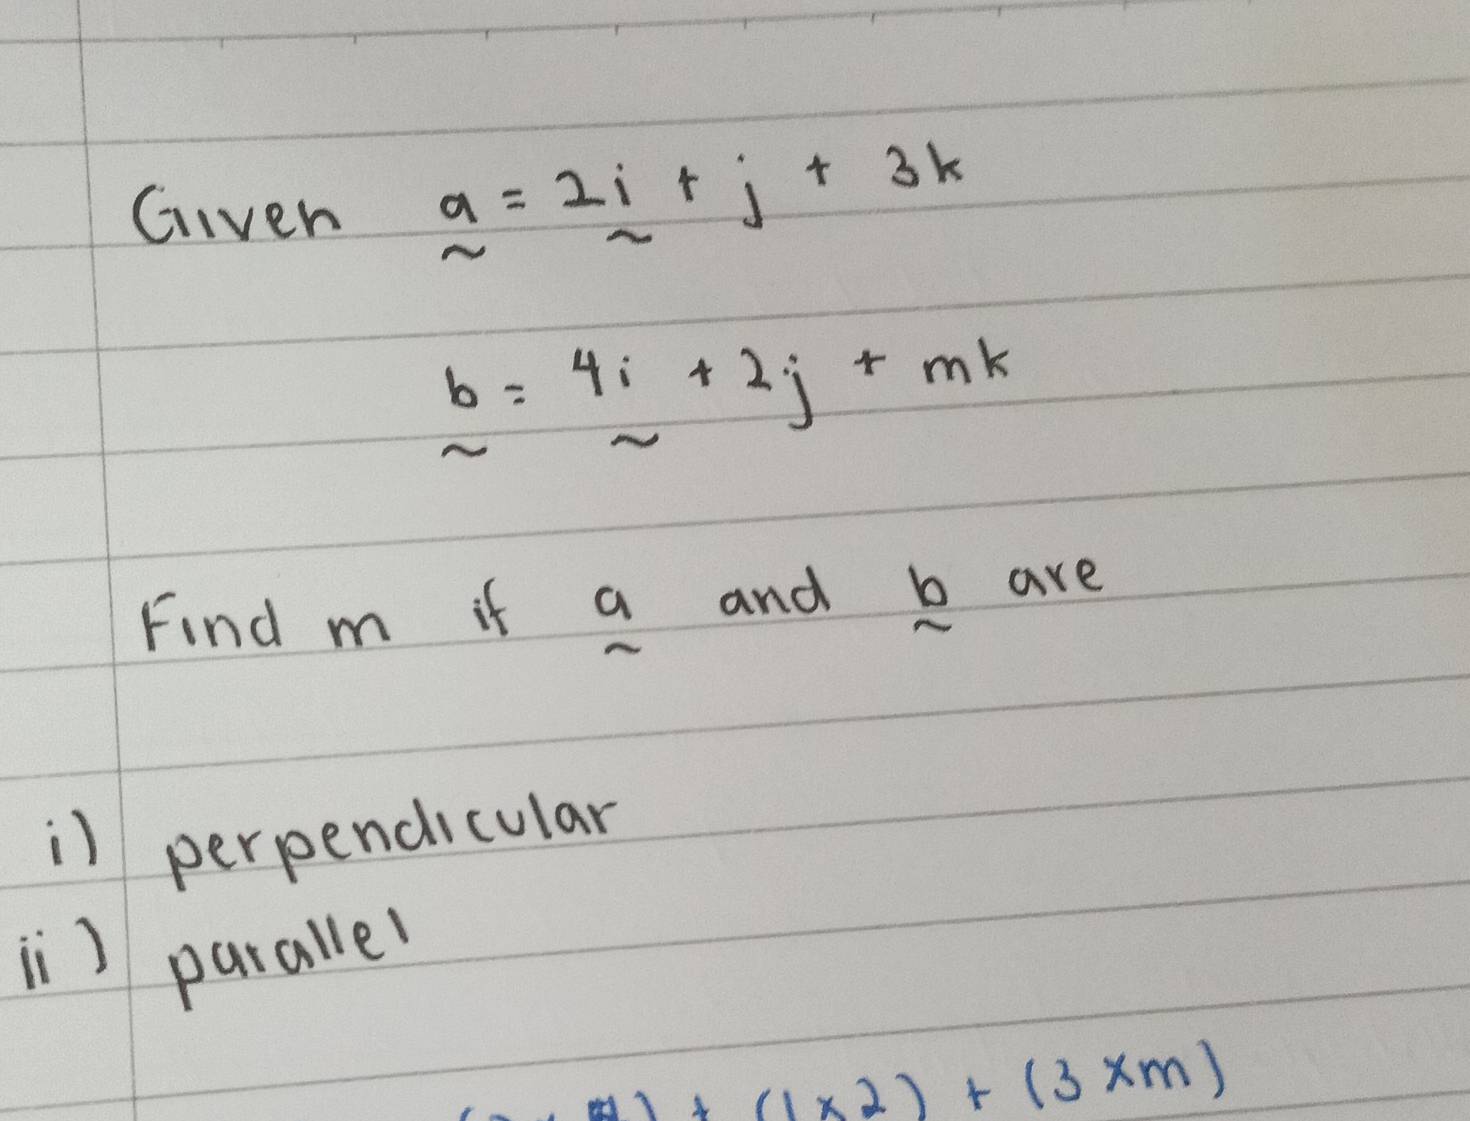 Given a = 2i + j + 3k
b = 4i + 2j + mk
Find m if a and b are
i) perpendicular
ii) parallel
) + (1 x 2) + (3 x m)